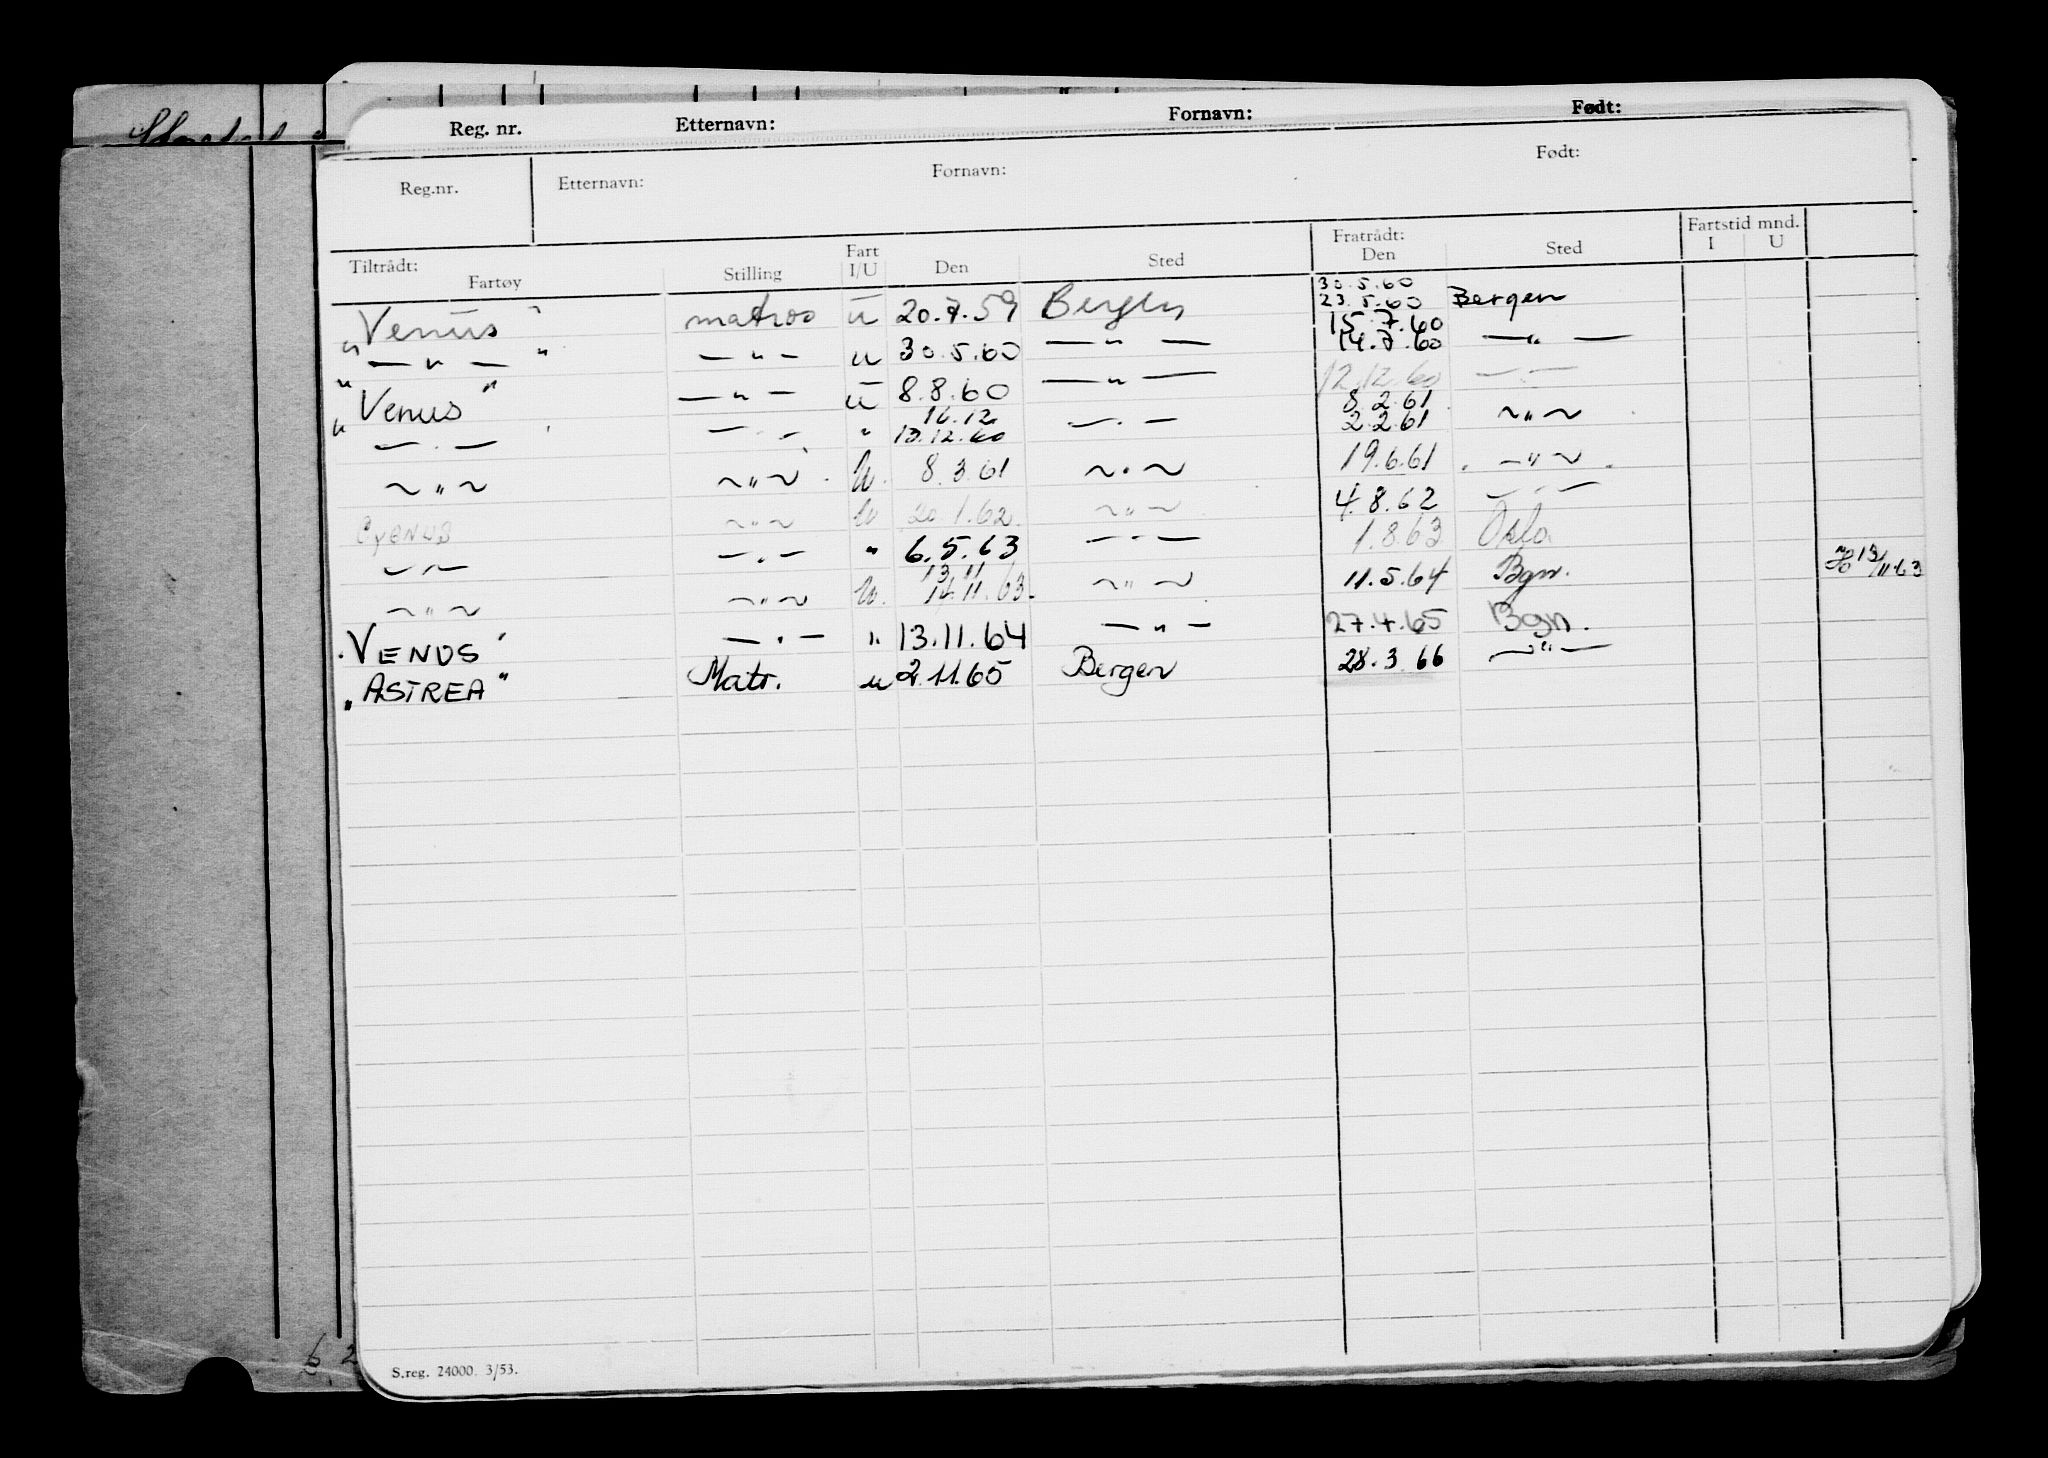 Reg. nr. Etternavn: Fornavn: Født:
Reg.nr. Etternavn: Fornavn: Født:
Tiltrådt: Fartøy Stilling Fart I/U Den Sted Fratrådt: Den Sted Fartstid mnd. I U
30.5.60
Venus" matros u 20.7.59 Bergen 23.5.60 Bergen
15.7.60
" — " — " — " — u 30.5.60 — " — 14.7.60 — " —
" Venus " — " — u 8.8.60 — " — 12.12.60 — " —
16.12 8.2.61
" — " — — " — " 13.12.60 — " — 2.2.61 ~ " ~
~ " ~ ~ " ~ U. 8.3.61 ~ " ~ 19.6.61 — " ~
CYGNUS ~ " ~ U 20.1.62. ~ " ~ 4.8.62 — " —
— " — — " — " 6.5.63 — " — 1.8.63 Oslo
13.11
~ " ~ ~ " ~ U. 14.11.63. ~ " ~ 11.5.64 Bgn. 13/11 63
"VENUS" — " — " 13.11.64 — " — 27.4.65 Bgn.
"ASTREA" Matr. u 2.11.65 Bergen 28.3.66 — " —
S.reg. 24000. 3/53.